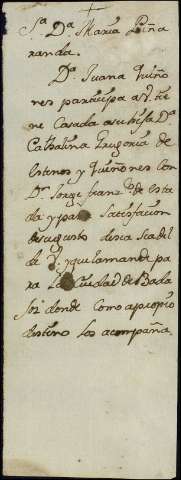 Sª. Dª. Maria Piña
randa.
Dª. Juana Quiño
nes participa a V. tie
ne Casada a su hija Dª
Cathalina Eugenia de
y Quiñones con
Dn. Jorge de Esta
da y para Satisfacion
de su gusto desea sea del
de V. y que la mande pa
ra la Ciudad de Bada
joz donde como a propio
destino los acompaña.